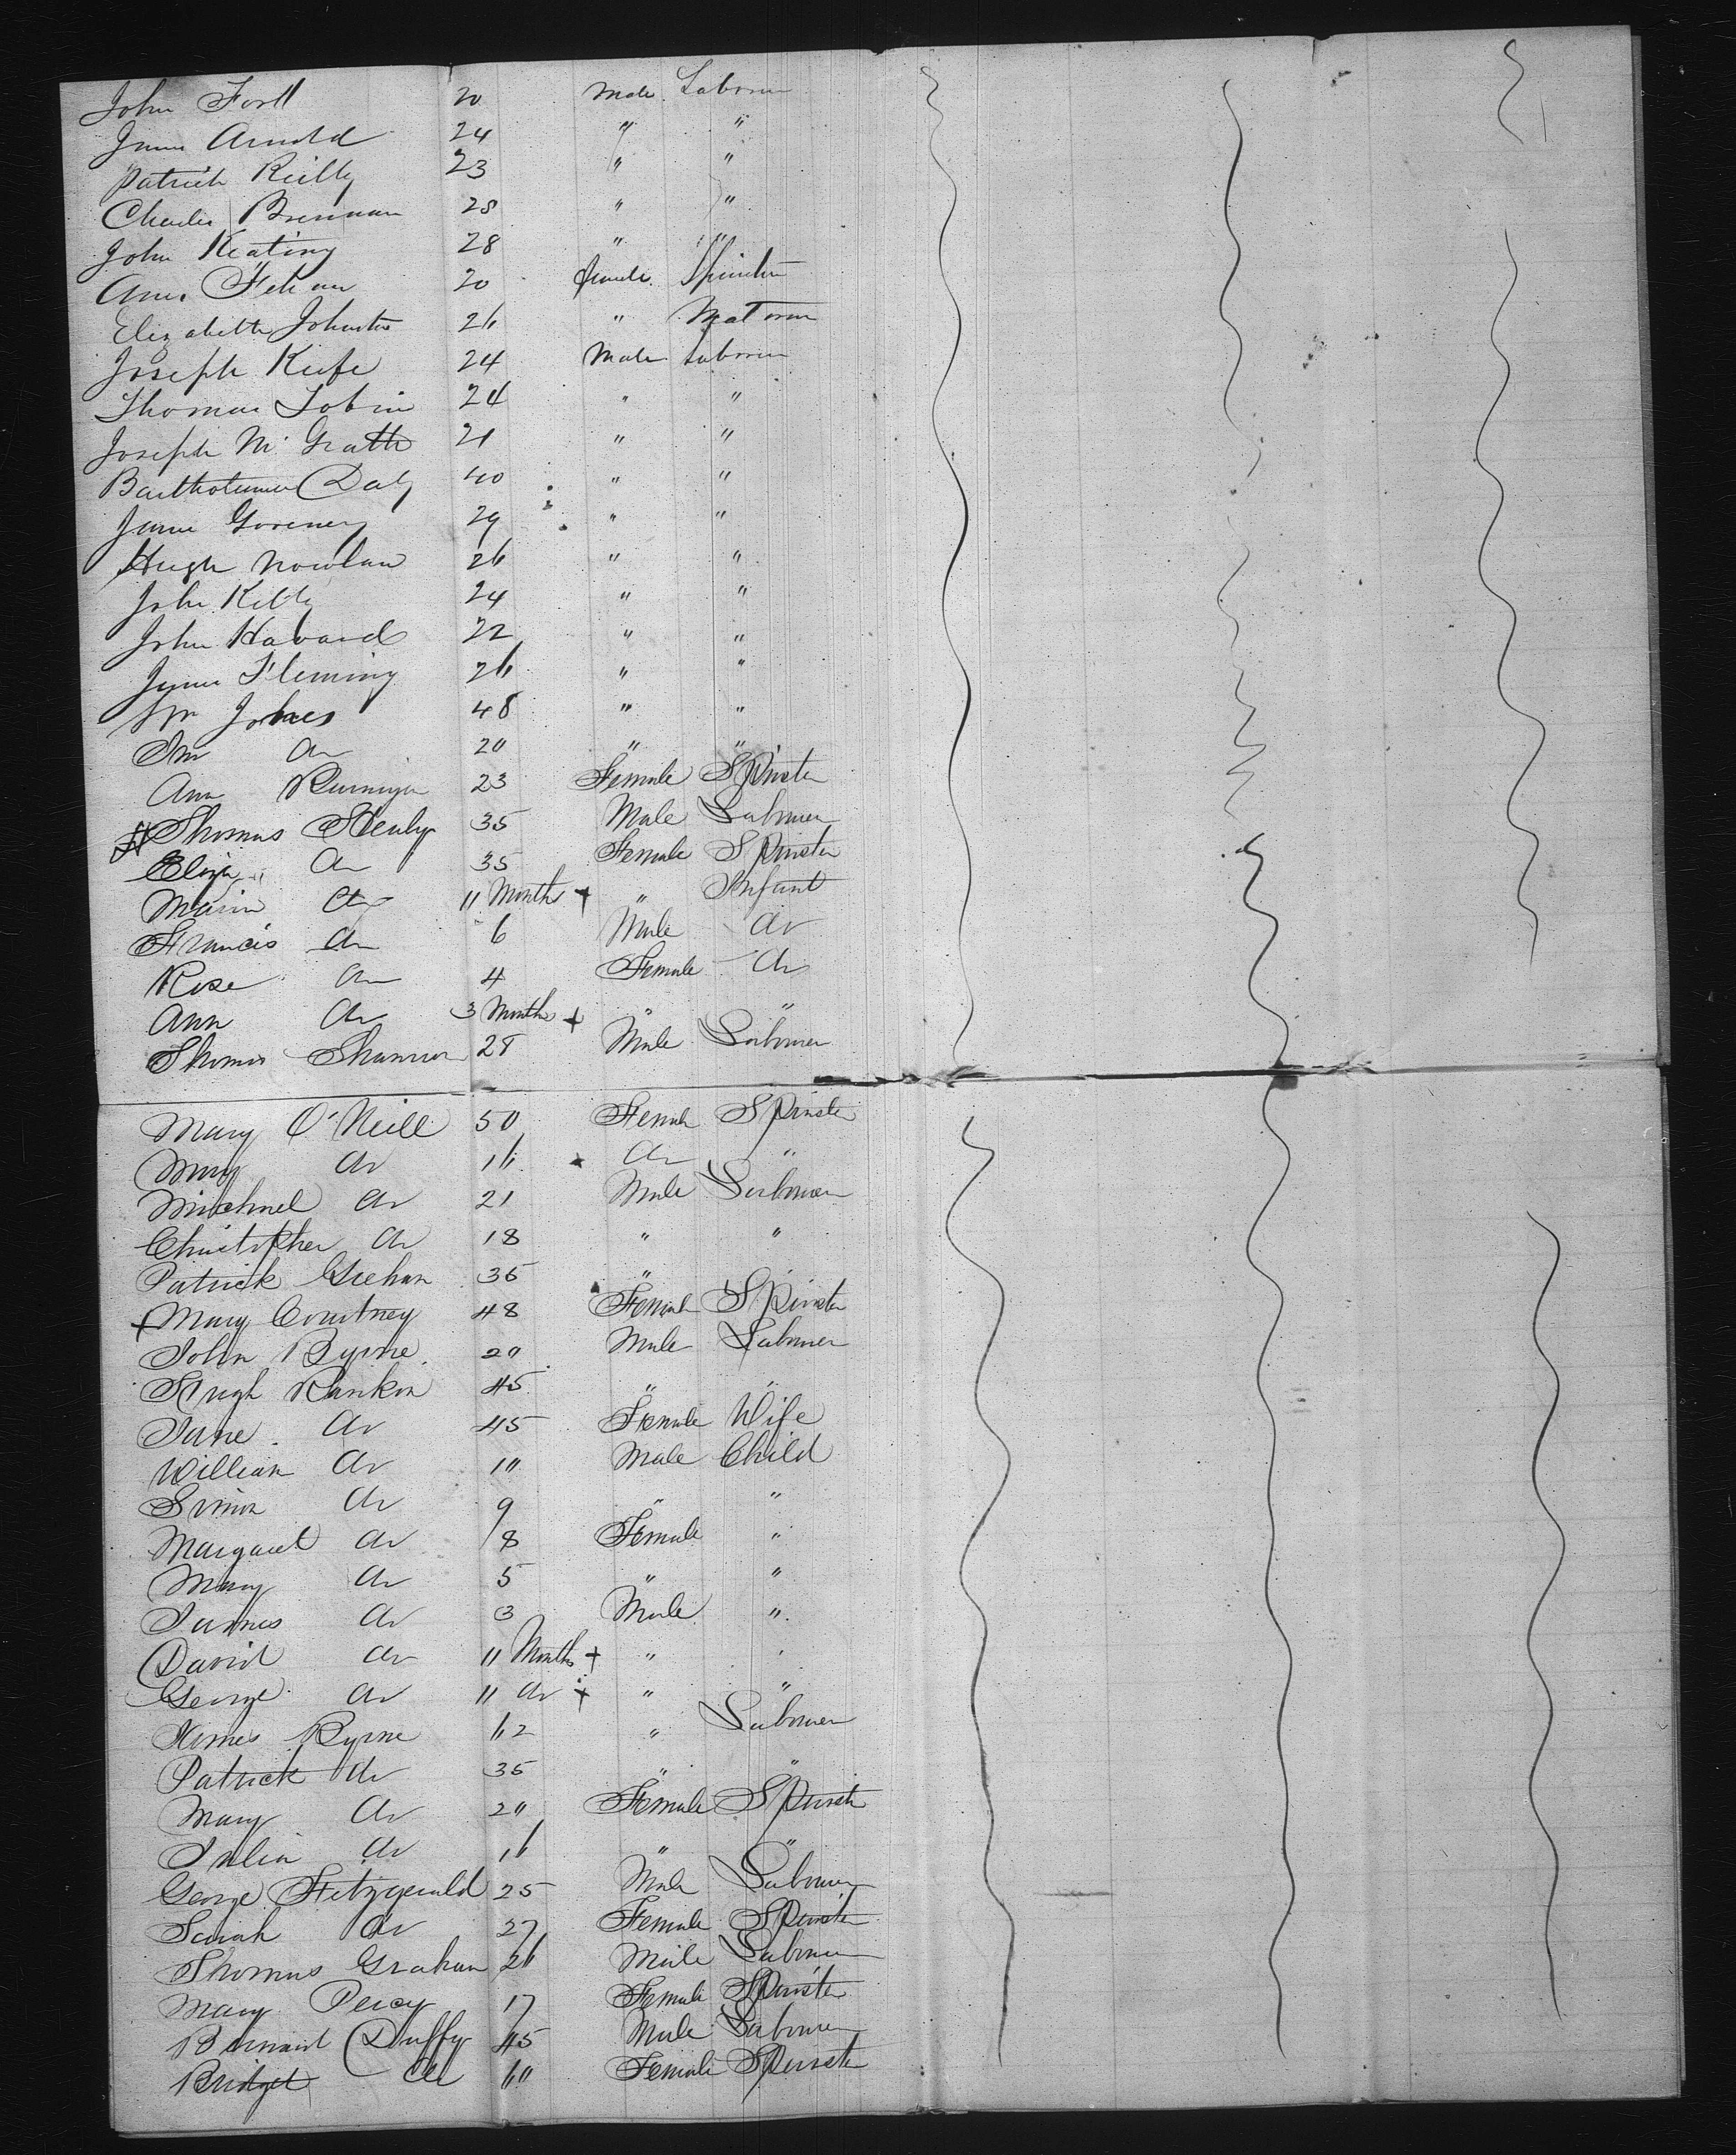 John 20 Male Labourer
James Arnold 24 " "
Patrick Reilly 23 " "
Charles Brennan 28 " "
John Keating 28 " "
Ann 20 female Spinster
Elizabeth Johnston 26 " Matron
Joseph Keefe 24 Male Labourer
Thomas Tobin 24 " "
Joseph Mc Grath 21 " "
Bartholomew Daly 40 " "
James 29 " "
Hugh Nowlan 26 " "
John Kelly 24 " "
John Havard 22 " "
James Fleming 26 " "
Wm Jones 48 " "
Do 20 " "
Ann 23 Female Spinster
Thomas Henly 35 Male Labourer
Eliza Do 35 Female Spinster
Maria Do 11 Months + " Infant
Francis Do 6 Male Do
Rose Do 4 Female Do
Ann Do 3 Months + " "
Thomas Shannon 28 Male Labourer
Mary O'Neill 50 Female Spinster
Mary Do 16 Do "
Michael Do 21 Male Labourer
Christopher Do 18 " "
Patrick Geehan 35 " "
+ Mary Courtney 48 Female Spinster
John Byrne 20 Male Labourer
Hugh Rankin 45 " "
Jane Do 45 Female Wife
William Do 10 Male Child
Simon Do 9 " "
Margaret Do 8 Female "
Mary Do 5 " "
James Do 3 Male "
David Do 11 Months + " "
George Do 11 Do + " "
James Byrne 62 " Labourer
Patrick Do 35 " "
Mary Do 20 Female Spinster
Julia Do 16 " "
George Fitzgerald 25 Male Labourer
Sarah Do 27 Female Spinster
Thomas Graham 26 Male Labourer
Mary Percy 17 Female Spinster
Bernard Duffy 45 Male Labourer
Bridget Do 60 Female Spinster